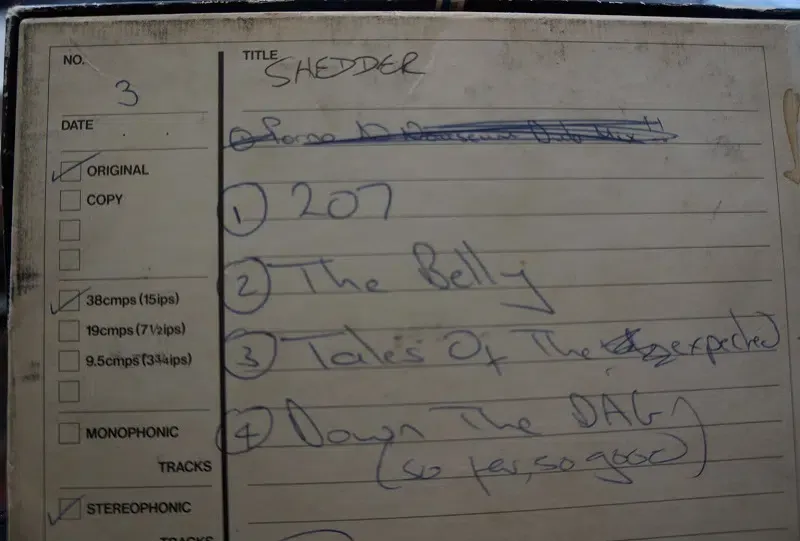 NO.
3
DATE
ORIGINAL
COPY
38cmps (15ips)
19cmps (7½ips)
9.5cmps (3¾ips)
MONOPHONIC
TRACKS
STEREOPHONIC
TRACKS
TITLE
SHEDDER
① 207
② The Belly
③ Tales Of The expected
④ Down The DAG
(so far, so good)